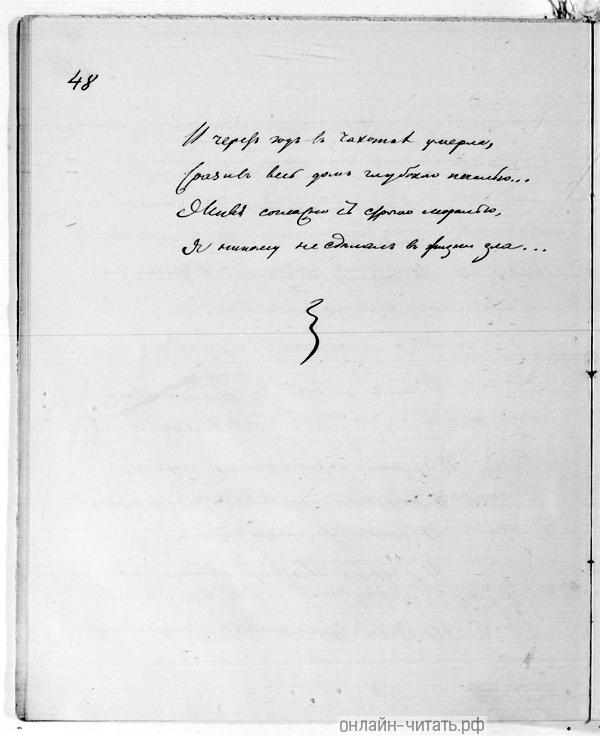 48
И черезъ годъ въ чахоткѣ умерла,
Сразивъ весь домъ глубокою печалью...
Живя согласно съ строгою моралью,
Я никому не сдѣлалъ въ жизни зла...
онлайн-читать.рф